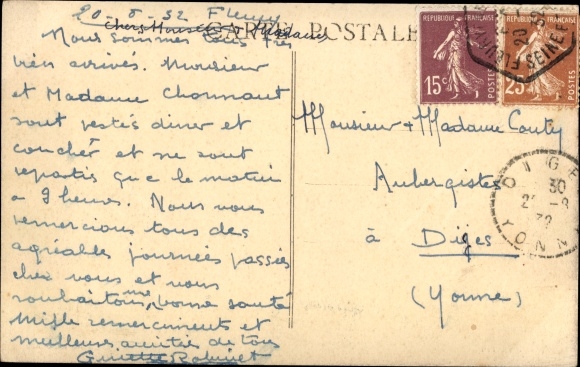 20-8-32 Fleury
Chers Monsieur et Madame
CARTE POSTALE
Nous sommes tous très
bien arrivés. Monsieur
et Madame Chommaut
sont restés diner et
coucher et ne sont
repartis que le matin
a 9 heures. Nous vous
remercions tous des
agréables journées passées
chez vous et vous
souhaitons bonne santé
Mille remerciments et
meilleures amitiés de tous
Ginette Robinet
REPUBLIQUE FRANÇAISE
15c
POSTES
REPUBLIQUE FRANÇAISE
25c
POSTES
FLEURY
20
SEINE
Monsieur & Madame Couty
Aubergistes
à Diges
(Yonne)
DIGES
YONNE